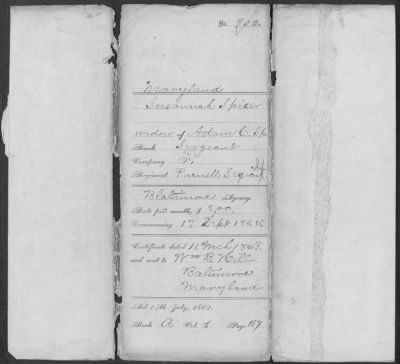 No. 962.
Maryland
Susannah Spicer
widow of Adam C. Sp
Rank Sergeant
Company
Regiment Purnell Legion
Baltimore Agency.
Rate per month, $ 8.00.
Commencing 17. Sept 1862.
Certificate dated 11. Mch 1863.
and sent to Wm R. Hill
Baltimore
Maryland
Act 14th July, 1862.
Book A Vol. Page 157